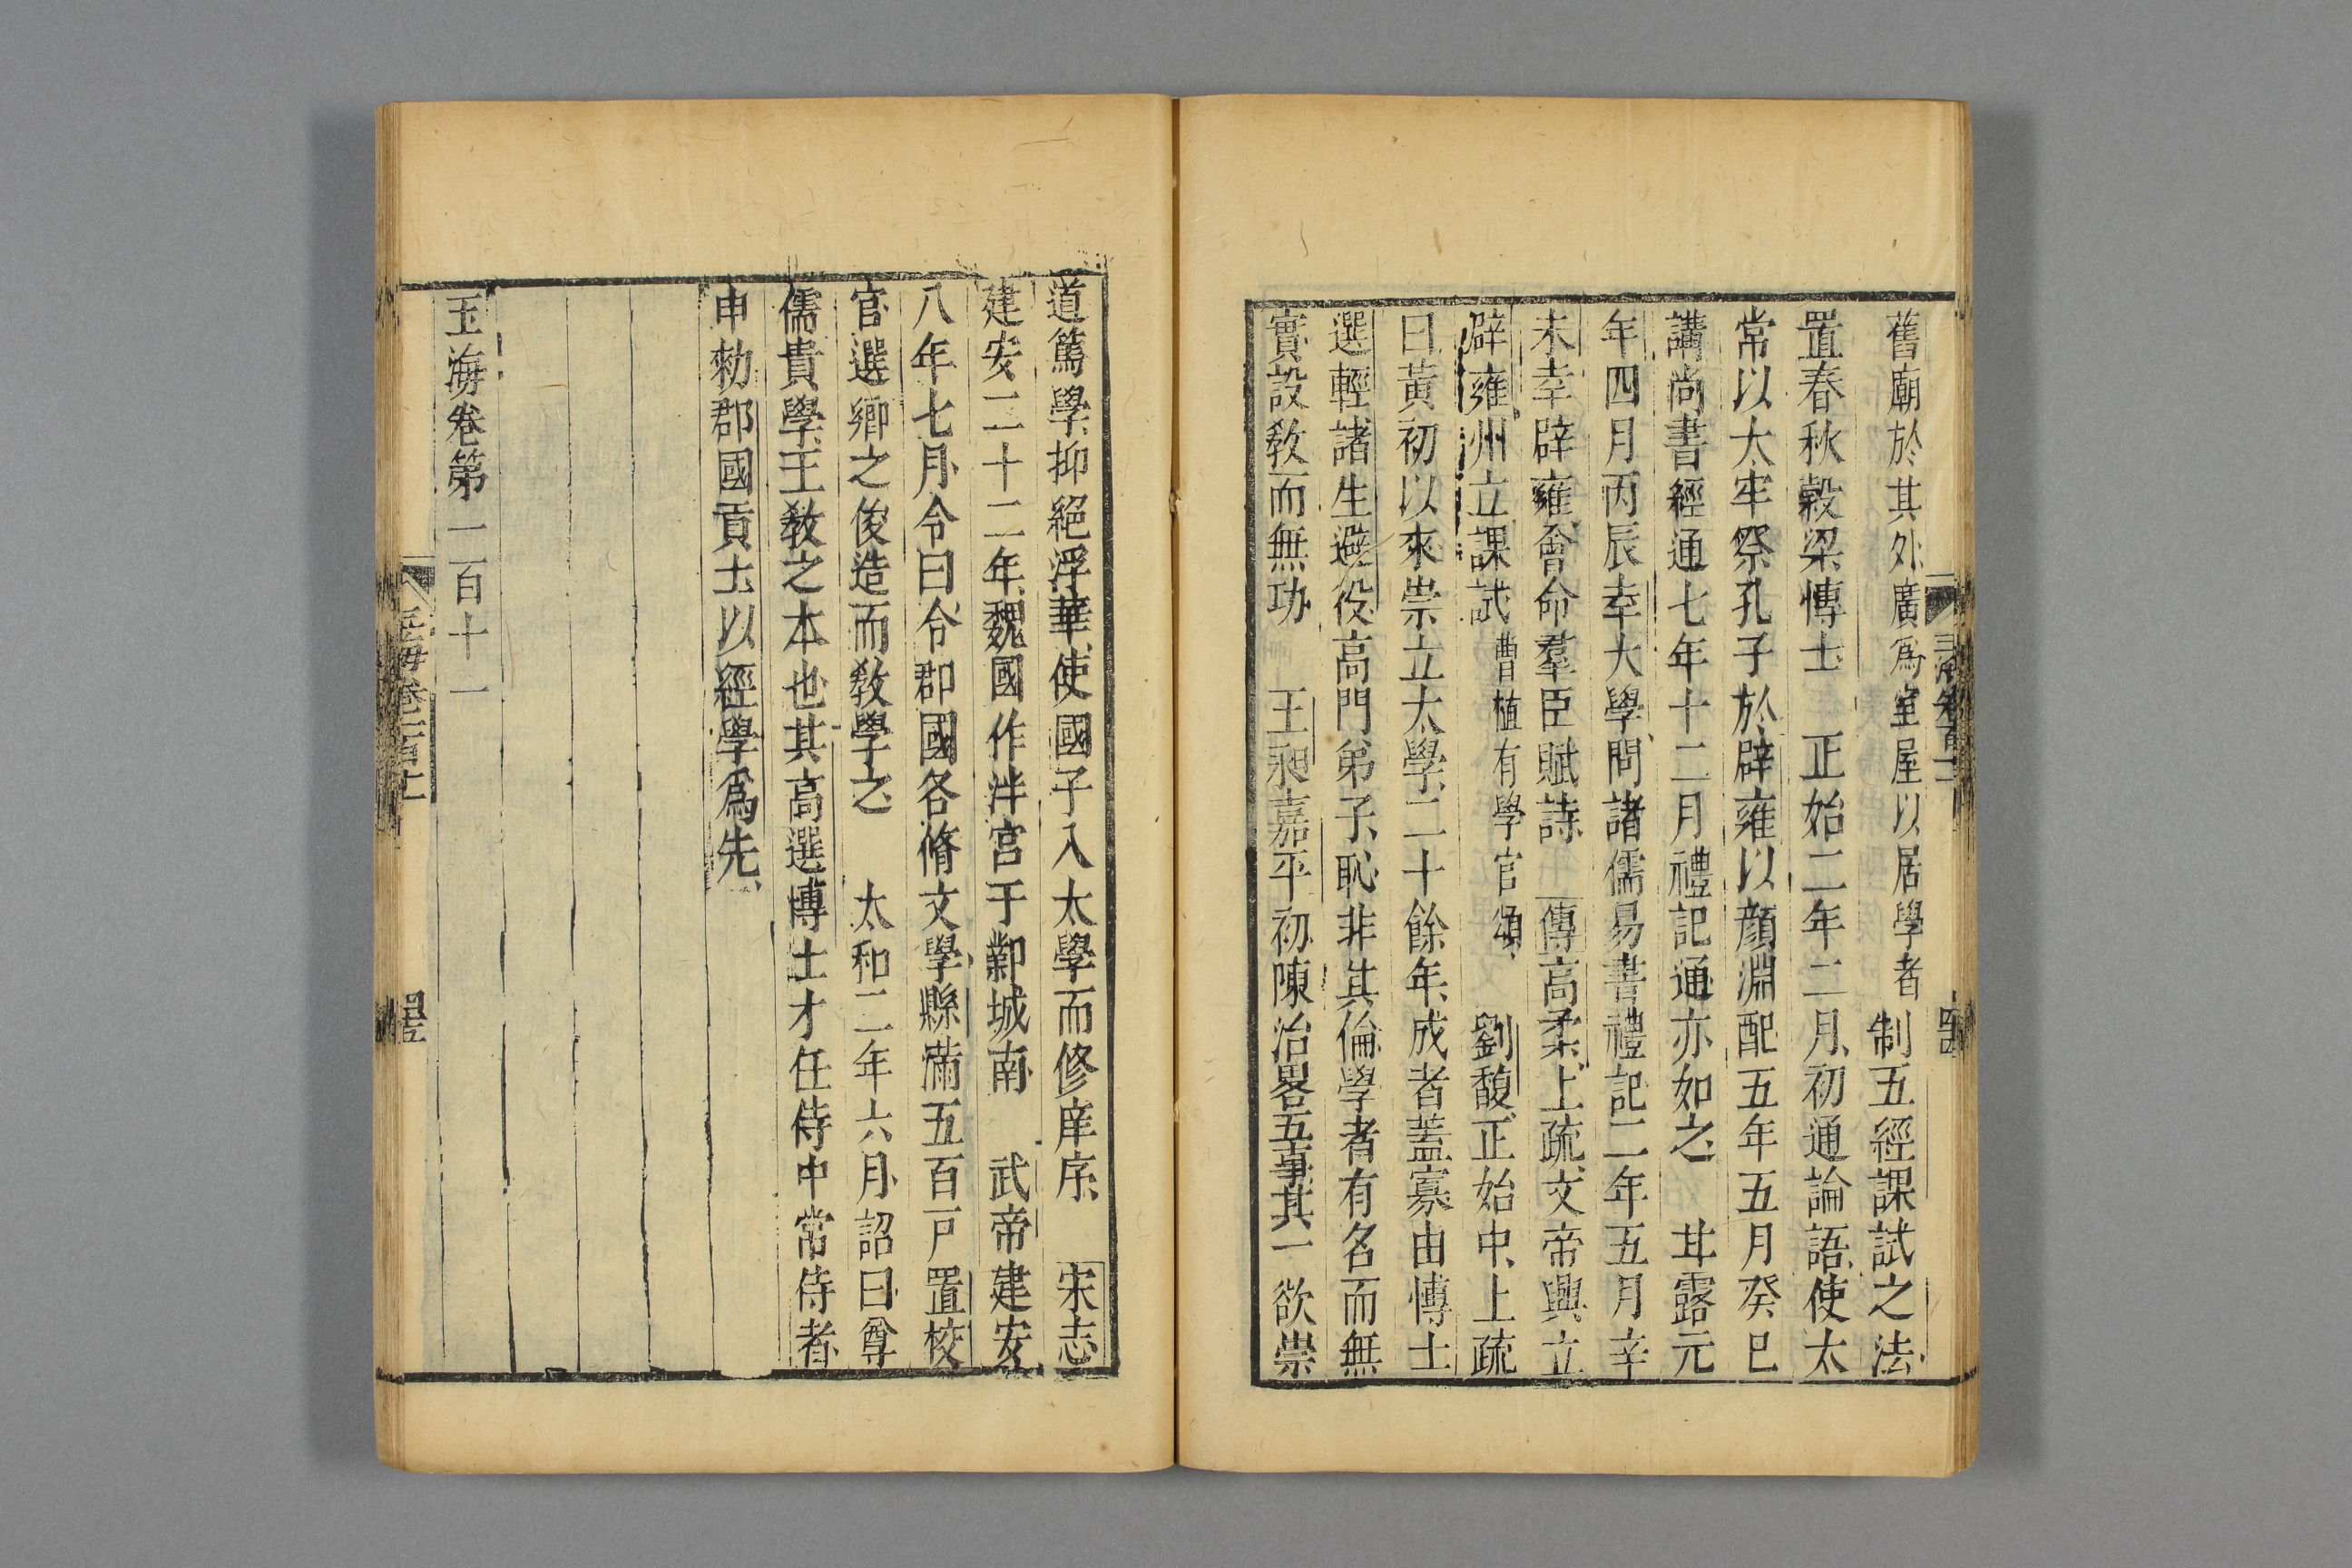 舊廟於其外廣爲室屋以居學者　制五經課試之法
置春秋穀梁博士　正始二年二月初通論語使太
常以太牢祭孔子於辟雍以顔淵配五年五月癸巳
講尚書經通七年十二月禮記通亦如之　甘露元
年四月丙辰幸大學問諸儒易書禮記二年五月辛
未幸辟雍會命羣臣賦詩　傳高柔上疏文帝興立
辟雍州立課試曹植有學官頌　劉馥正始中上疏
曰黃初以來崇立太學二十餘年成者蓋寡由博士
選輕諸生避役高門弟子恥非其倫學者有名而無
實設敎而無功　王昶嘉平初陳治畧五事其一欲崇
道篤學抑絕浮華使國子入太學而修庠序　宋志
建安二十二年魏國作泮宮于鄴城南　武帝建安
八年七月令曰令郡國各脩文學縣滿五百戸置校
官選鄉之俊造而敎學之　太和二年六月詔曰尊
儒貴學王敎之本也其高選博士才任侍中常侍者
申勑郡國貢士以經學爲先
玉海卷第一百十一